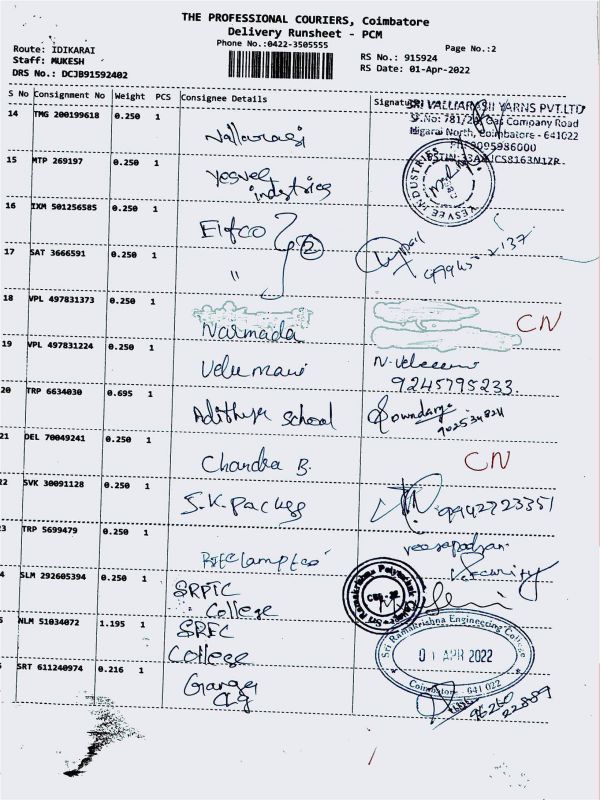 THE PROFESSIONAL COURIERS, Coimbatore
Delivery Runsheet - PCM
Phone No.:0422-3505555
Page No.:2
Route: IDIKARAI
Staff: MUKESH
DRS No.: DCJB91592402
RS No.: 915924
RS Date: 01-Apr-2022
S No Consignment No Weight PCS Consignee Details Signature
SRI VALLIARASII YARNS PVT.LTD
Gas Company Road
North, Coimbatore - 641022
9095986000
14 TMG 200199618 0.250 1 Nallarasi
15 MTP 269197 0.250 1 Yesvee industries
YESVEE INDUSTRIES
16 IXM 501256585 0.250 1 Elfco 2
17 SAT 3666591 0.250 1 "
18 VPL 497831373 0.250 1 Narmada CN
19 VPL 497831224 0.250 1 Velumani
9245795233
20 TRP 6634030 0.695 1 Adithya School Sowndarya
21 DEL 70049241 0.250 1 Chandra B. CN
22 SVK 30091128 0.250 1 S.K. Packgs 9942723351
23 TRP 5699479 0.250 1
Security
24 SLM 292605394 0.250 1 SRPTC College
Sri Ramakrishna Polytechnic College
25 NLM 51034072 1.195 1 SREC College
Sri Ramakrishna Engineering College
01 APR 2022
Coimbatore - 641 022
26 SRT 611240974 0.216 1 Ganga